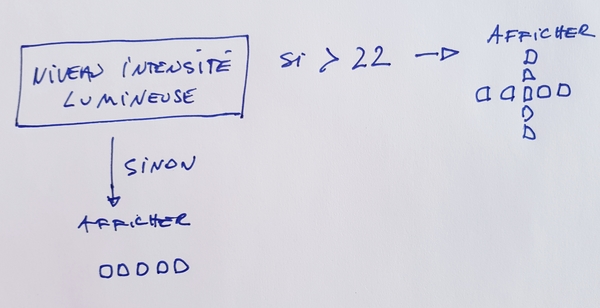 NIVEAU INTENSITÉ
LUMINEUSE
si > 22
AFFICHER
SINON
AFFICHER